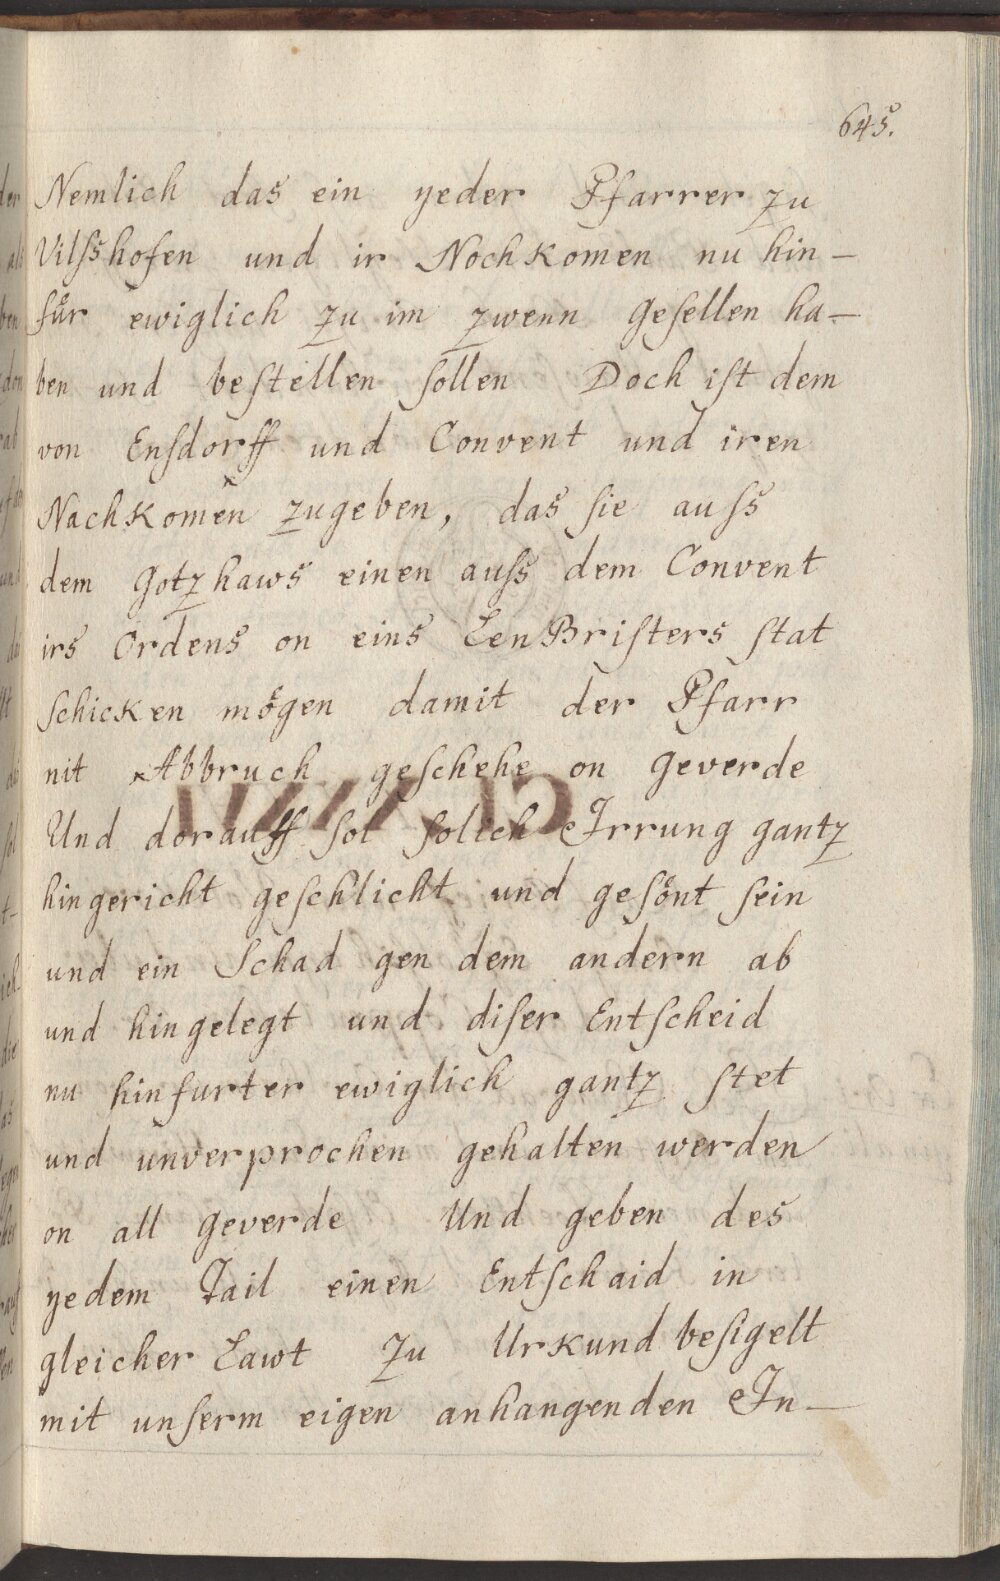 645.
Nemlich das ein yeder Pfarrer zu
Vilſshofen und ir Nochkomen nu hin-
fůr ewiglich zu im zwenn Geſellen ha-
ben und beſtellen ſollen Doch iſt dem
von Enſdorff und Convent und iren
Nachkomen zugeben, das ſie auſs
dem Gotzhaws einen auſs dem Convent
irs Ordens on eins LenBriſters ſtat
ſchicken mögen damit der Pfarr
nit Abbruch geſchehe on geverde
Und dorauff ſol ſolich Irrung gantz
hingericht geſchlicht und geſönt ſein
und ein Schad gen dem andern ab
und hingelegt und diſer Entſcheid
nu hinfurter ewiglich gantz ſtet
und unverprochen gehalten werden
on all geverde Und geben des
yedem Tail einen Entſchaid in
gleicher Lawt zu Urkund beſigelt
mit unſerm eigen anhangenden In-